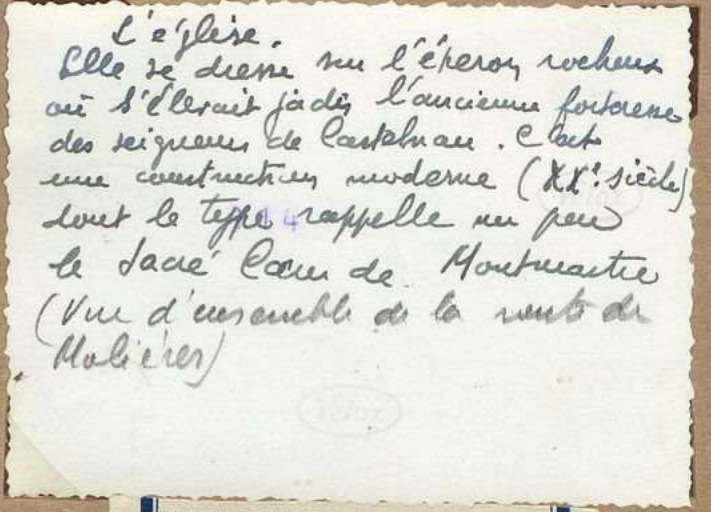 L'église.
Elle se dresse sur l'éperon rocheux
où s'élevait jadis l'ancienne forteresse
des seigneurs de Castelnau. C'est
une construction moderne (XXe siècle)
dont le type rappelle un peu
le Sacré Cœur de Montmartre
(Vue d'ensemble de la route de
Molières)
Velox